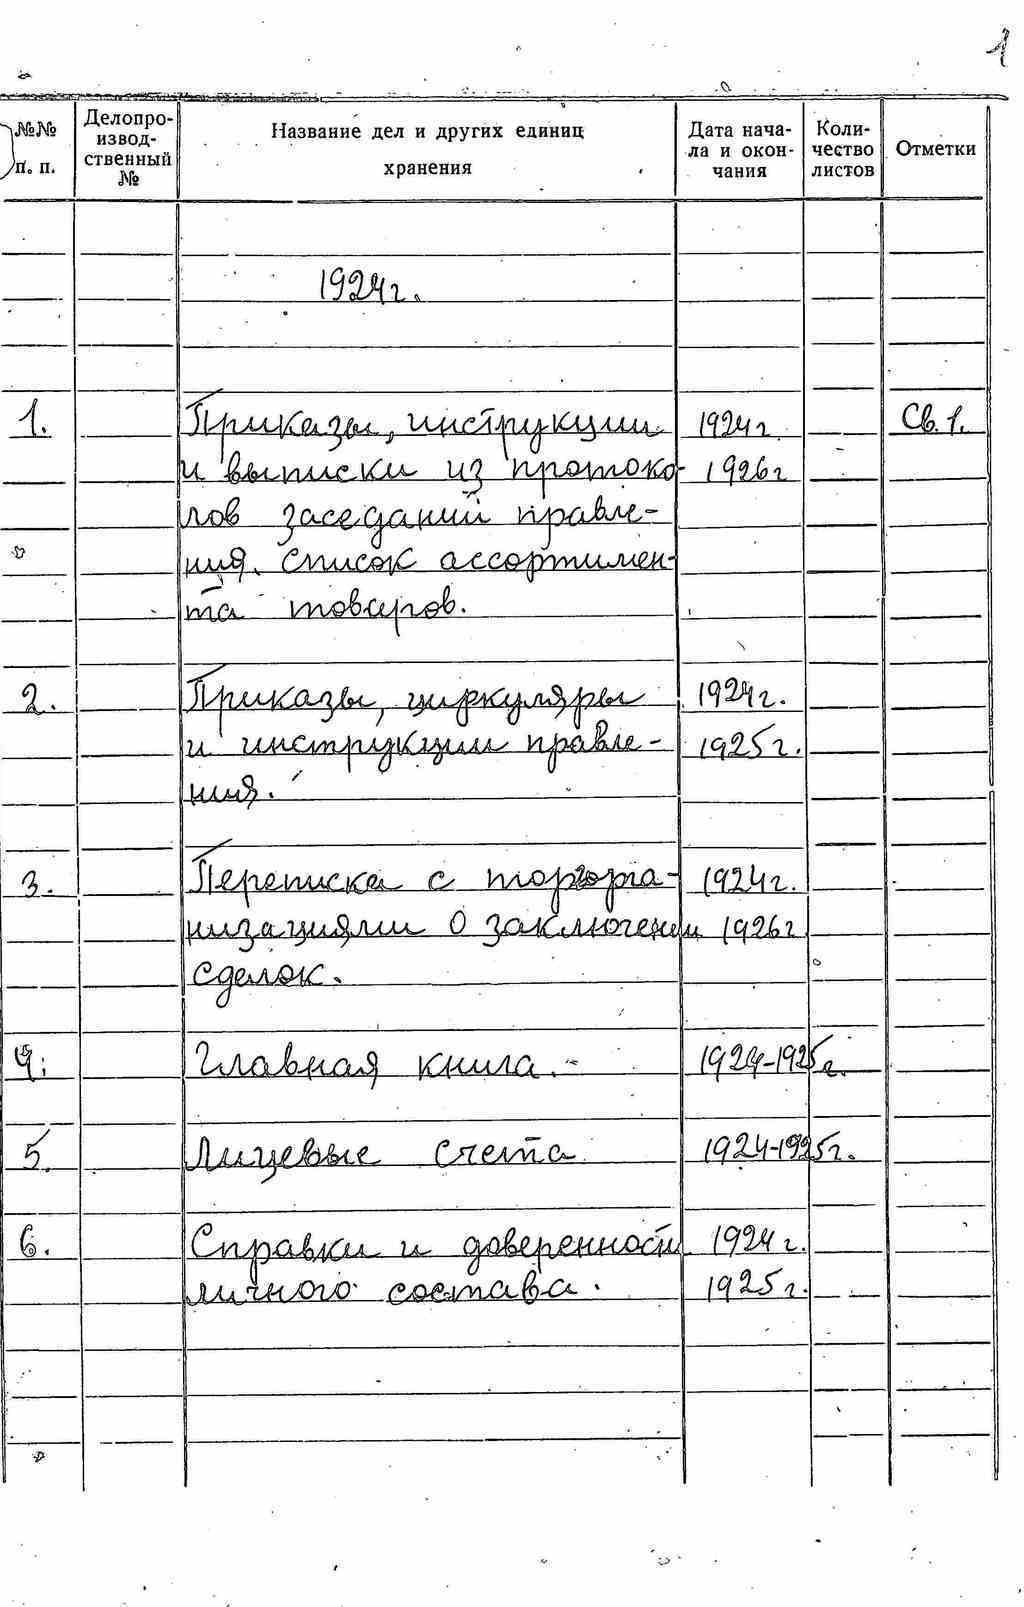 1
№№ п. п.
Делопро-
извод-
ственный
№
Название дел и других единиц
хранения
Дата нача-
ла и окон-
чания
Коли-
чество
листов
Отметки
1924г.
1. Приказы, инструкции 1924г. Св. 1.
и выписки из протоко- 1926г
лов заседаний правле-
ния. Список ассортимен-
та товаров.
2. Приказы, циркуляры 1924г.
и инструкции правле- 1925г.
ния.
3. Переписка с торгорга- 1924г.
низациями о заключении 1926г
сделок.
4. Главная книга. 1924-1925г.
5. Лицевые счета 1924-1925г.
6. Справки и доверенности 1924г.
личного состава. 1925г.